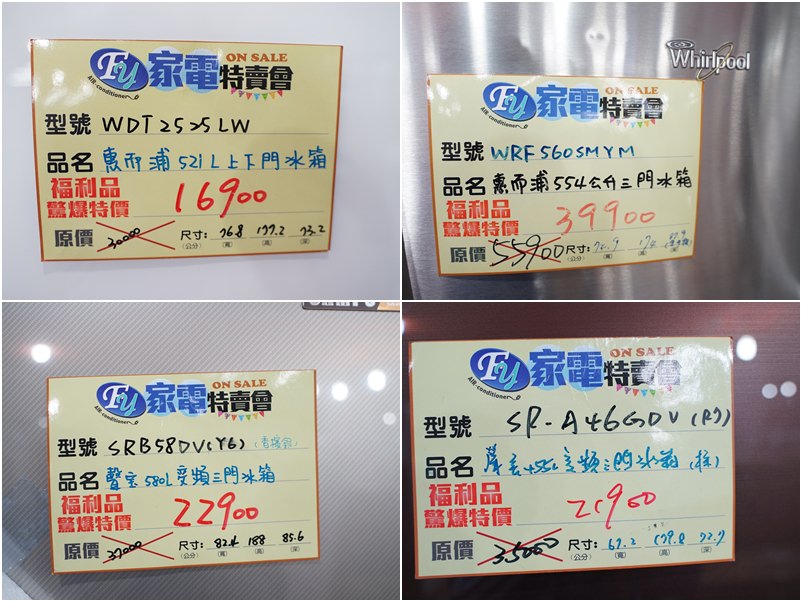 FU 家電特賣會 ON SALE
AIR-conditioner
型號 WDT2525LW
品名 惠而浦 521L上下門冰箱
福利品
驚爆特價 16900
原價 30000 尺寸: 76.8 177.2 73.2
(公分) (寬) (高) (深)
Whirlpool
FU 家電特賣會 ON SALE
AIR-conditioner
型號 WRF560SMYM
品名 惠而浦554公升三門冰箱
福利品
驚爆特價 39900
原價 55900 尺寸: 174
(公分) (寬) (高) (深)
FU 家電特賣會 ON SALE
AIR-conditioner
型號 SRB58DV(Y6) (香檳銀)
品名 聲宝580L变頻三門冰箱
福利品
驚爆特價 22900
原價 37000 尺寸: 82.4 188 85.6
(公分) (寬) (高) (深)
FU 家電特賣會 ON SALE
AIR-conditioner
型號 SR-A46GDV(R7)
品名 聲宝 455L变頻三門冰箱
福利品
驚爆特價 21900
原價 35000 尺寸: 67.2 179.8 72.7
(公分) (寬) (高) (深)